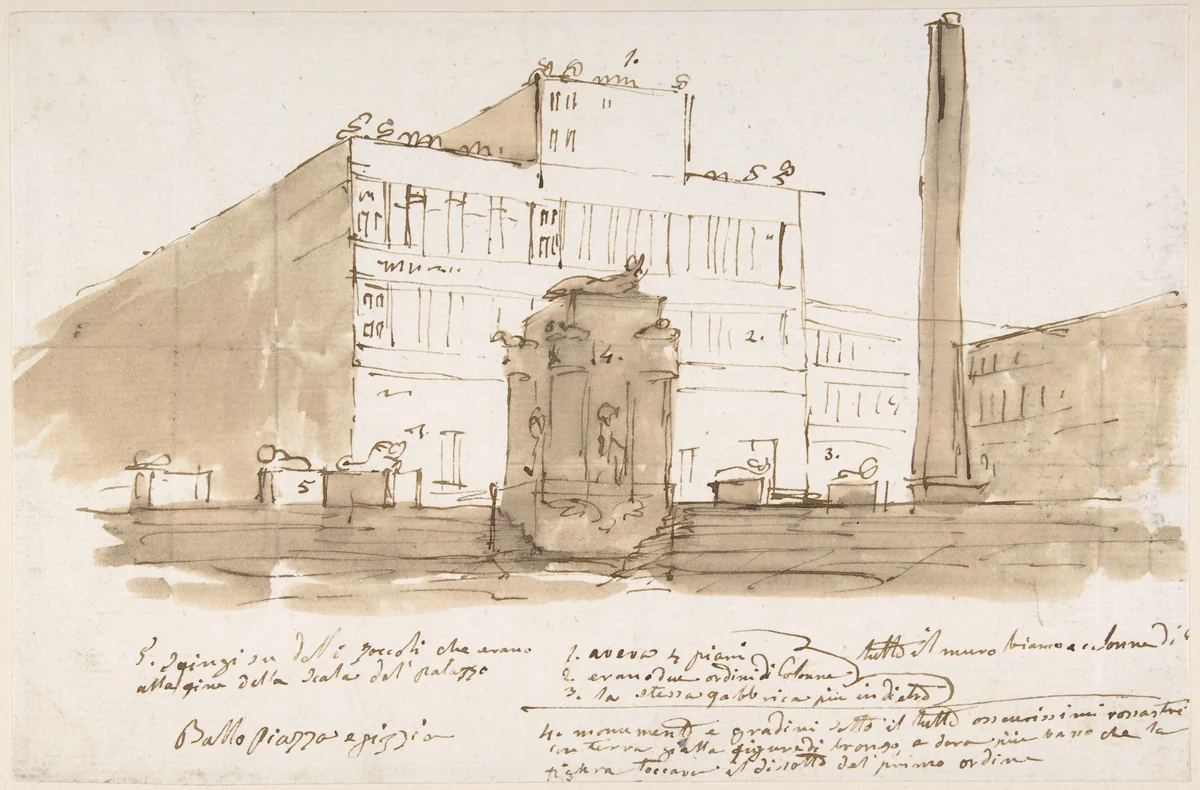 1.
2.
4.
3.
5
5. Sfingi su delli zoccoli che erano
alla fine della Scala del palazzo
Ballo Piazza egizzia
1. aveva 4 piani
2. erano due ordini di Colonne
3. la stessa fabbrica più indietro
tutto il muro bianco e colonne di
4. monumento e gradini sotto il tutto oscurissimi rossastri
in terra gialla figure di bronzo, e dora più basso che la
figura toccava il disotto del primo ordine